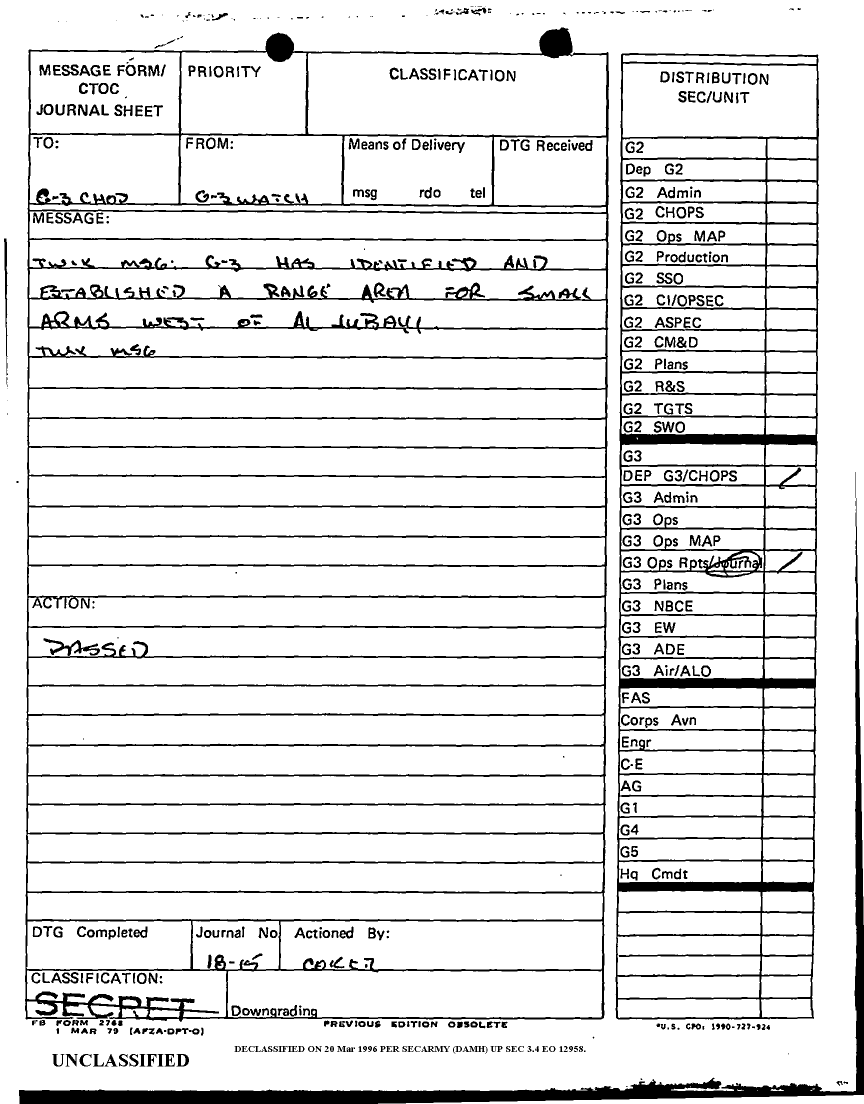 MESSAGE FORM/
CTOC
JOURNAL SHEET
PRIORITY
CLASSIFICATION
TO:
G-3 CHOP
FROM:
G-3 WATCH
Means of Delivery
msg rdo tel
DTG Received
MESSAGE:
TWIX MSG: G-3 HAS IDENTIFIED AND
ESTABLISHED A RANGE AREA FOR SMALL
ARMS WEST OF AL JUBAYL
TWIX MSG
ACTION:
PASSED
DTG Completed
Journal No
18-15
Actioned By:
COKER
CLASSIFICATION:
SECRET
Downgrading
FB FORM 2768
1 MAR 79 (AFZA-DPT-O)
PREVIOUS EDITION OBSOLETE
DISTRIBUTION
SEC/UNIT
G2
Dep G2
G2 Admin
G2 CHOPS
G2 Ops MAP
G2 Production
G2 SSO
G2 CI/OPSEC
G2 ASPEC
G2 CM&D
G2 Plans
G2 R&S
G2 TGTS
G2 SWO
G3
DEP G3/CHOPS
G3 Admin
G3 Ops
G3 Ops MAP
G3 Ops Rpts/Journal
G3 Plans
G3 NBCE
G3 EW
G3 ADE
G3 Air/ALO
FAS
Corps Avn
Engr
C-E
AG
G1
G4
G5
Hq Cmdt
*U.S. GPO: 1990-727-924
UNCLASSIFIED
DECLASSIFIED ON 20 Mar 1996 PER SECARMY (DAMH) UP SEC 3.4 EO 12958.